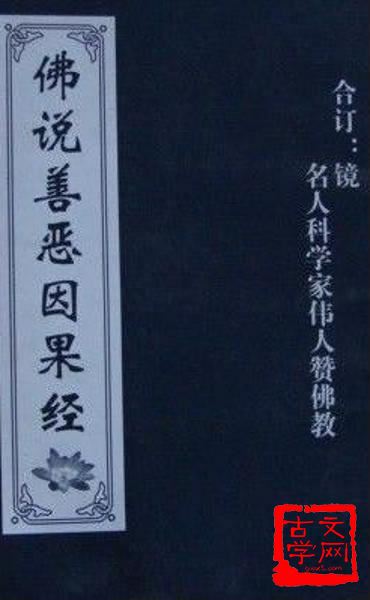 佛说善恶因果经
合订：镜
名人科学家伟人赞佛教
古文学网